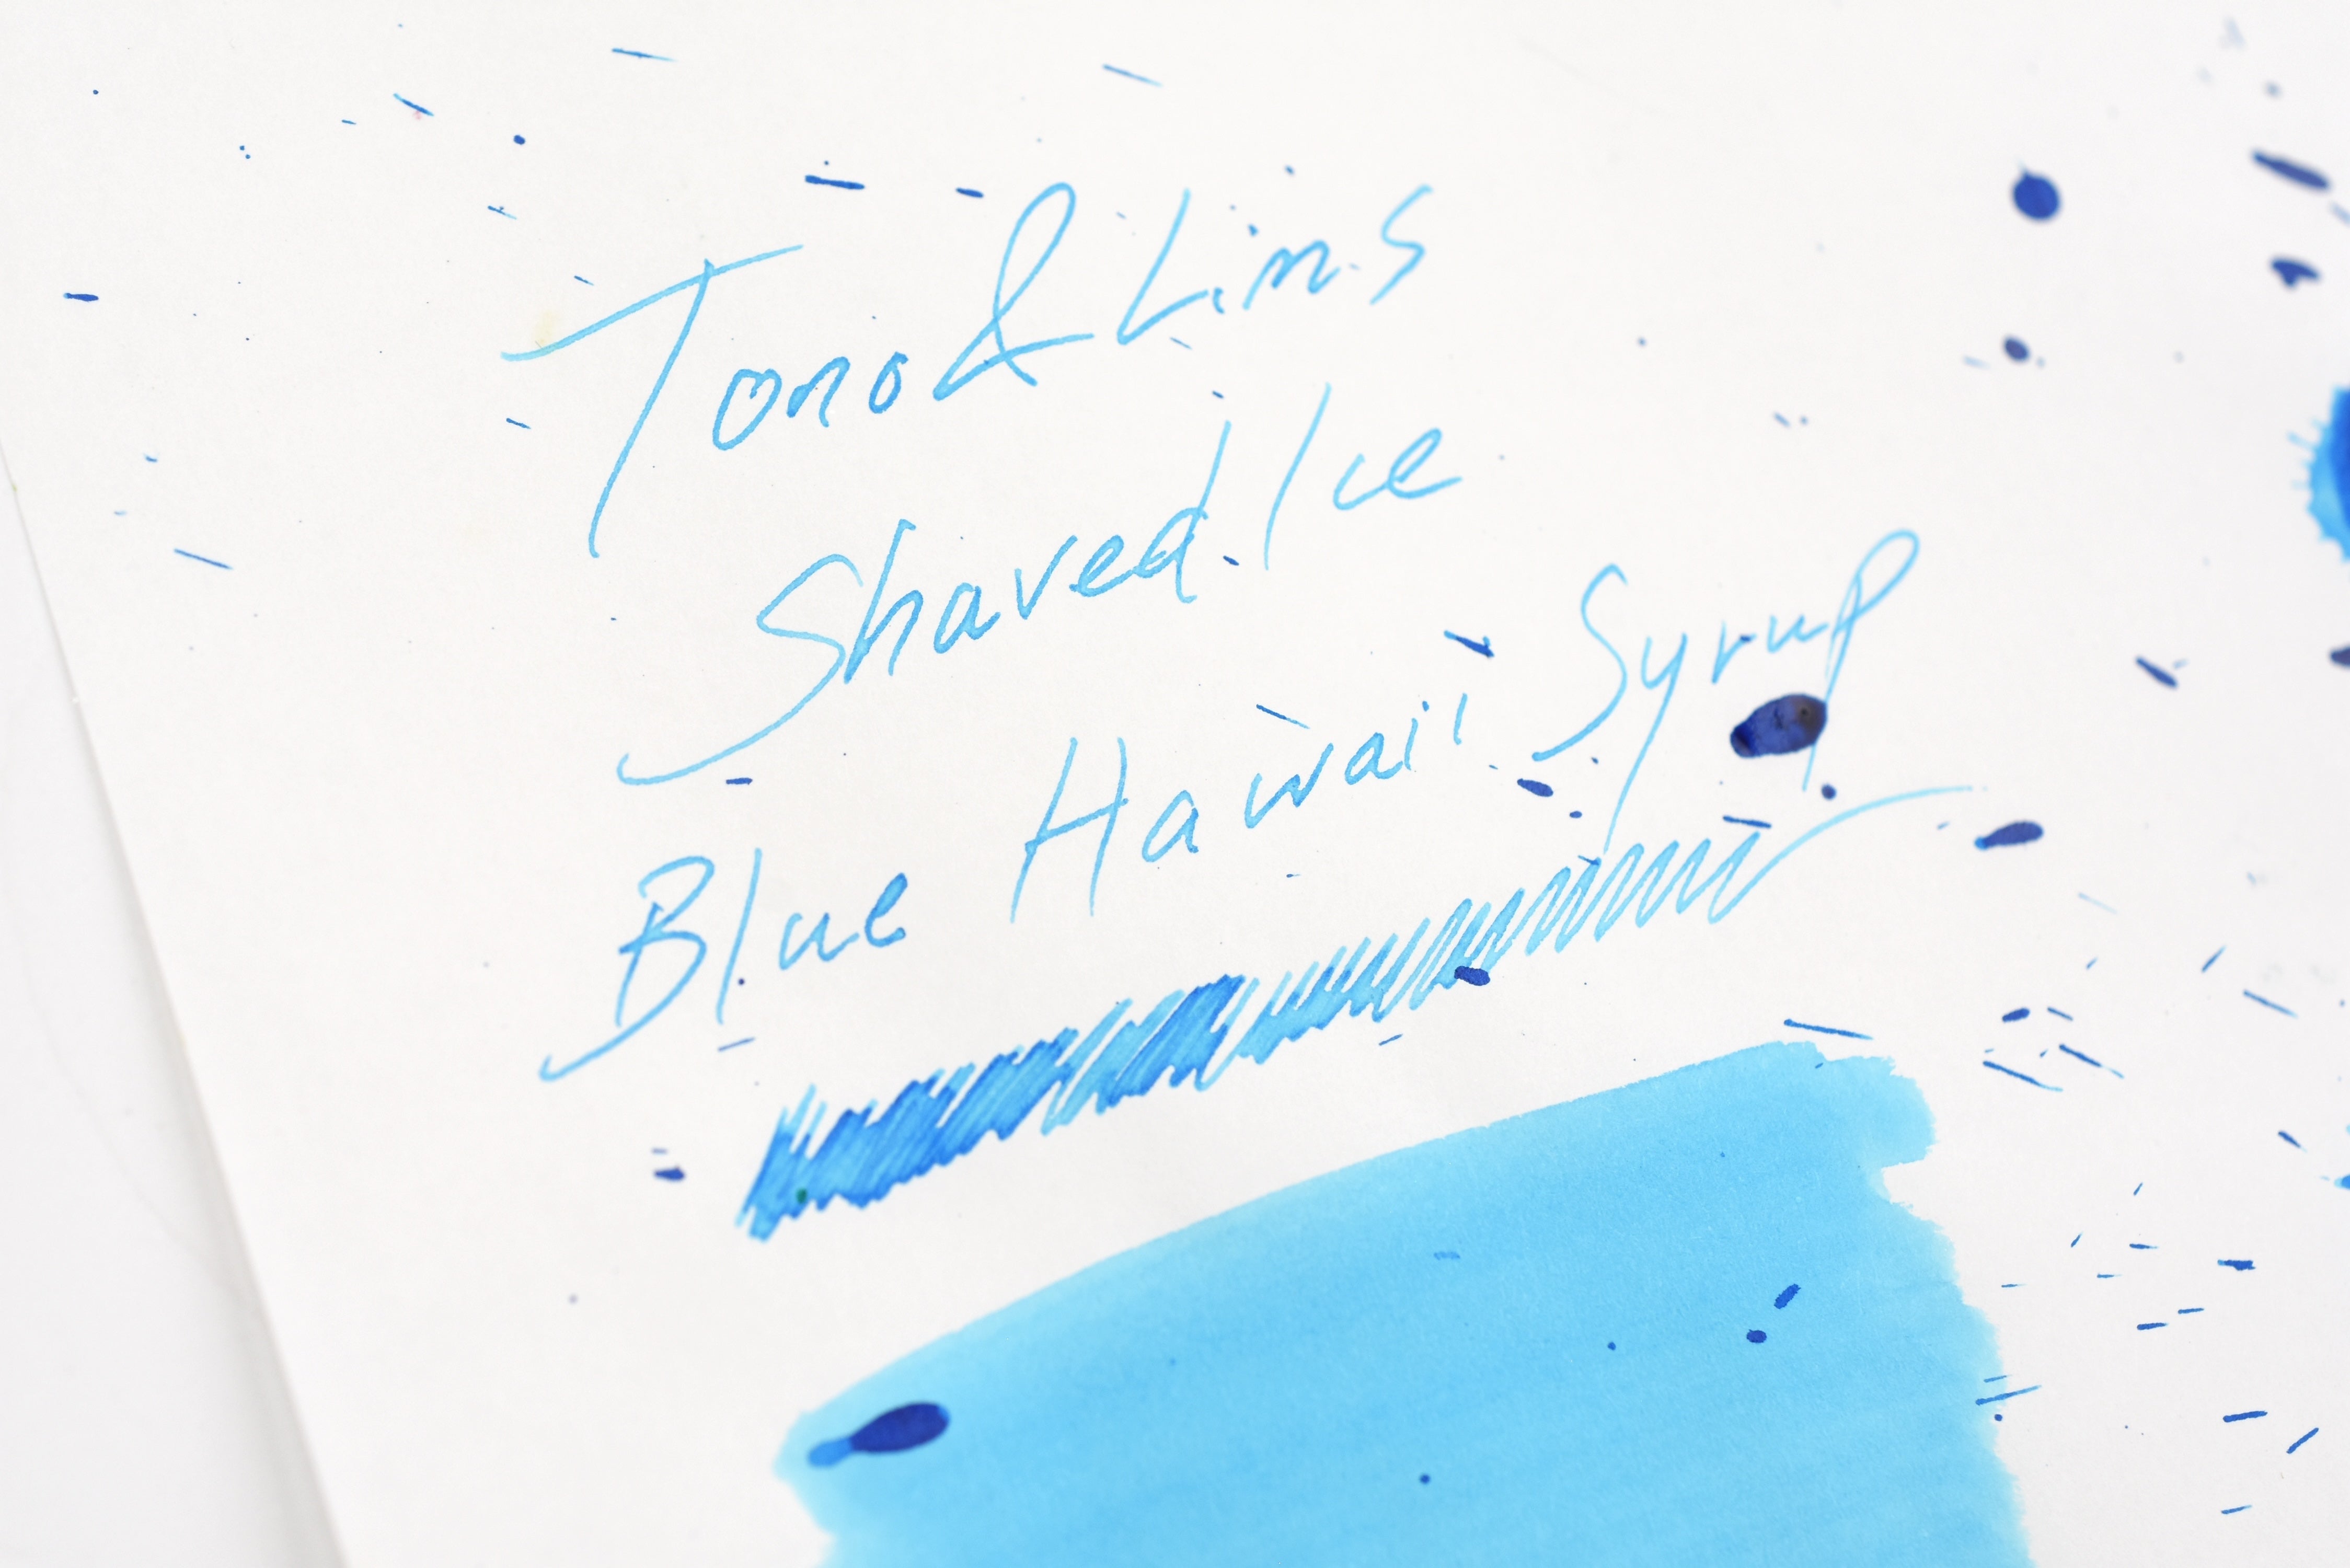 Tono & Lims
Shaved Ice
Blue Hawaii Syrup